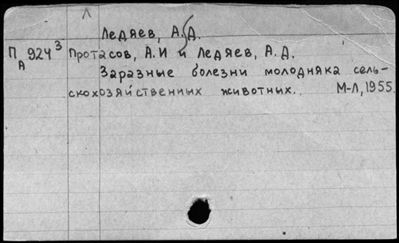 Л
Ледяев, А.Д.
П/А 924³ Протасов, А.И и Ледяев, А.Д.
Заразные болезни молодняка сель-
скохозяйственных животных. М-Л, 1955.